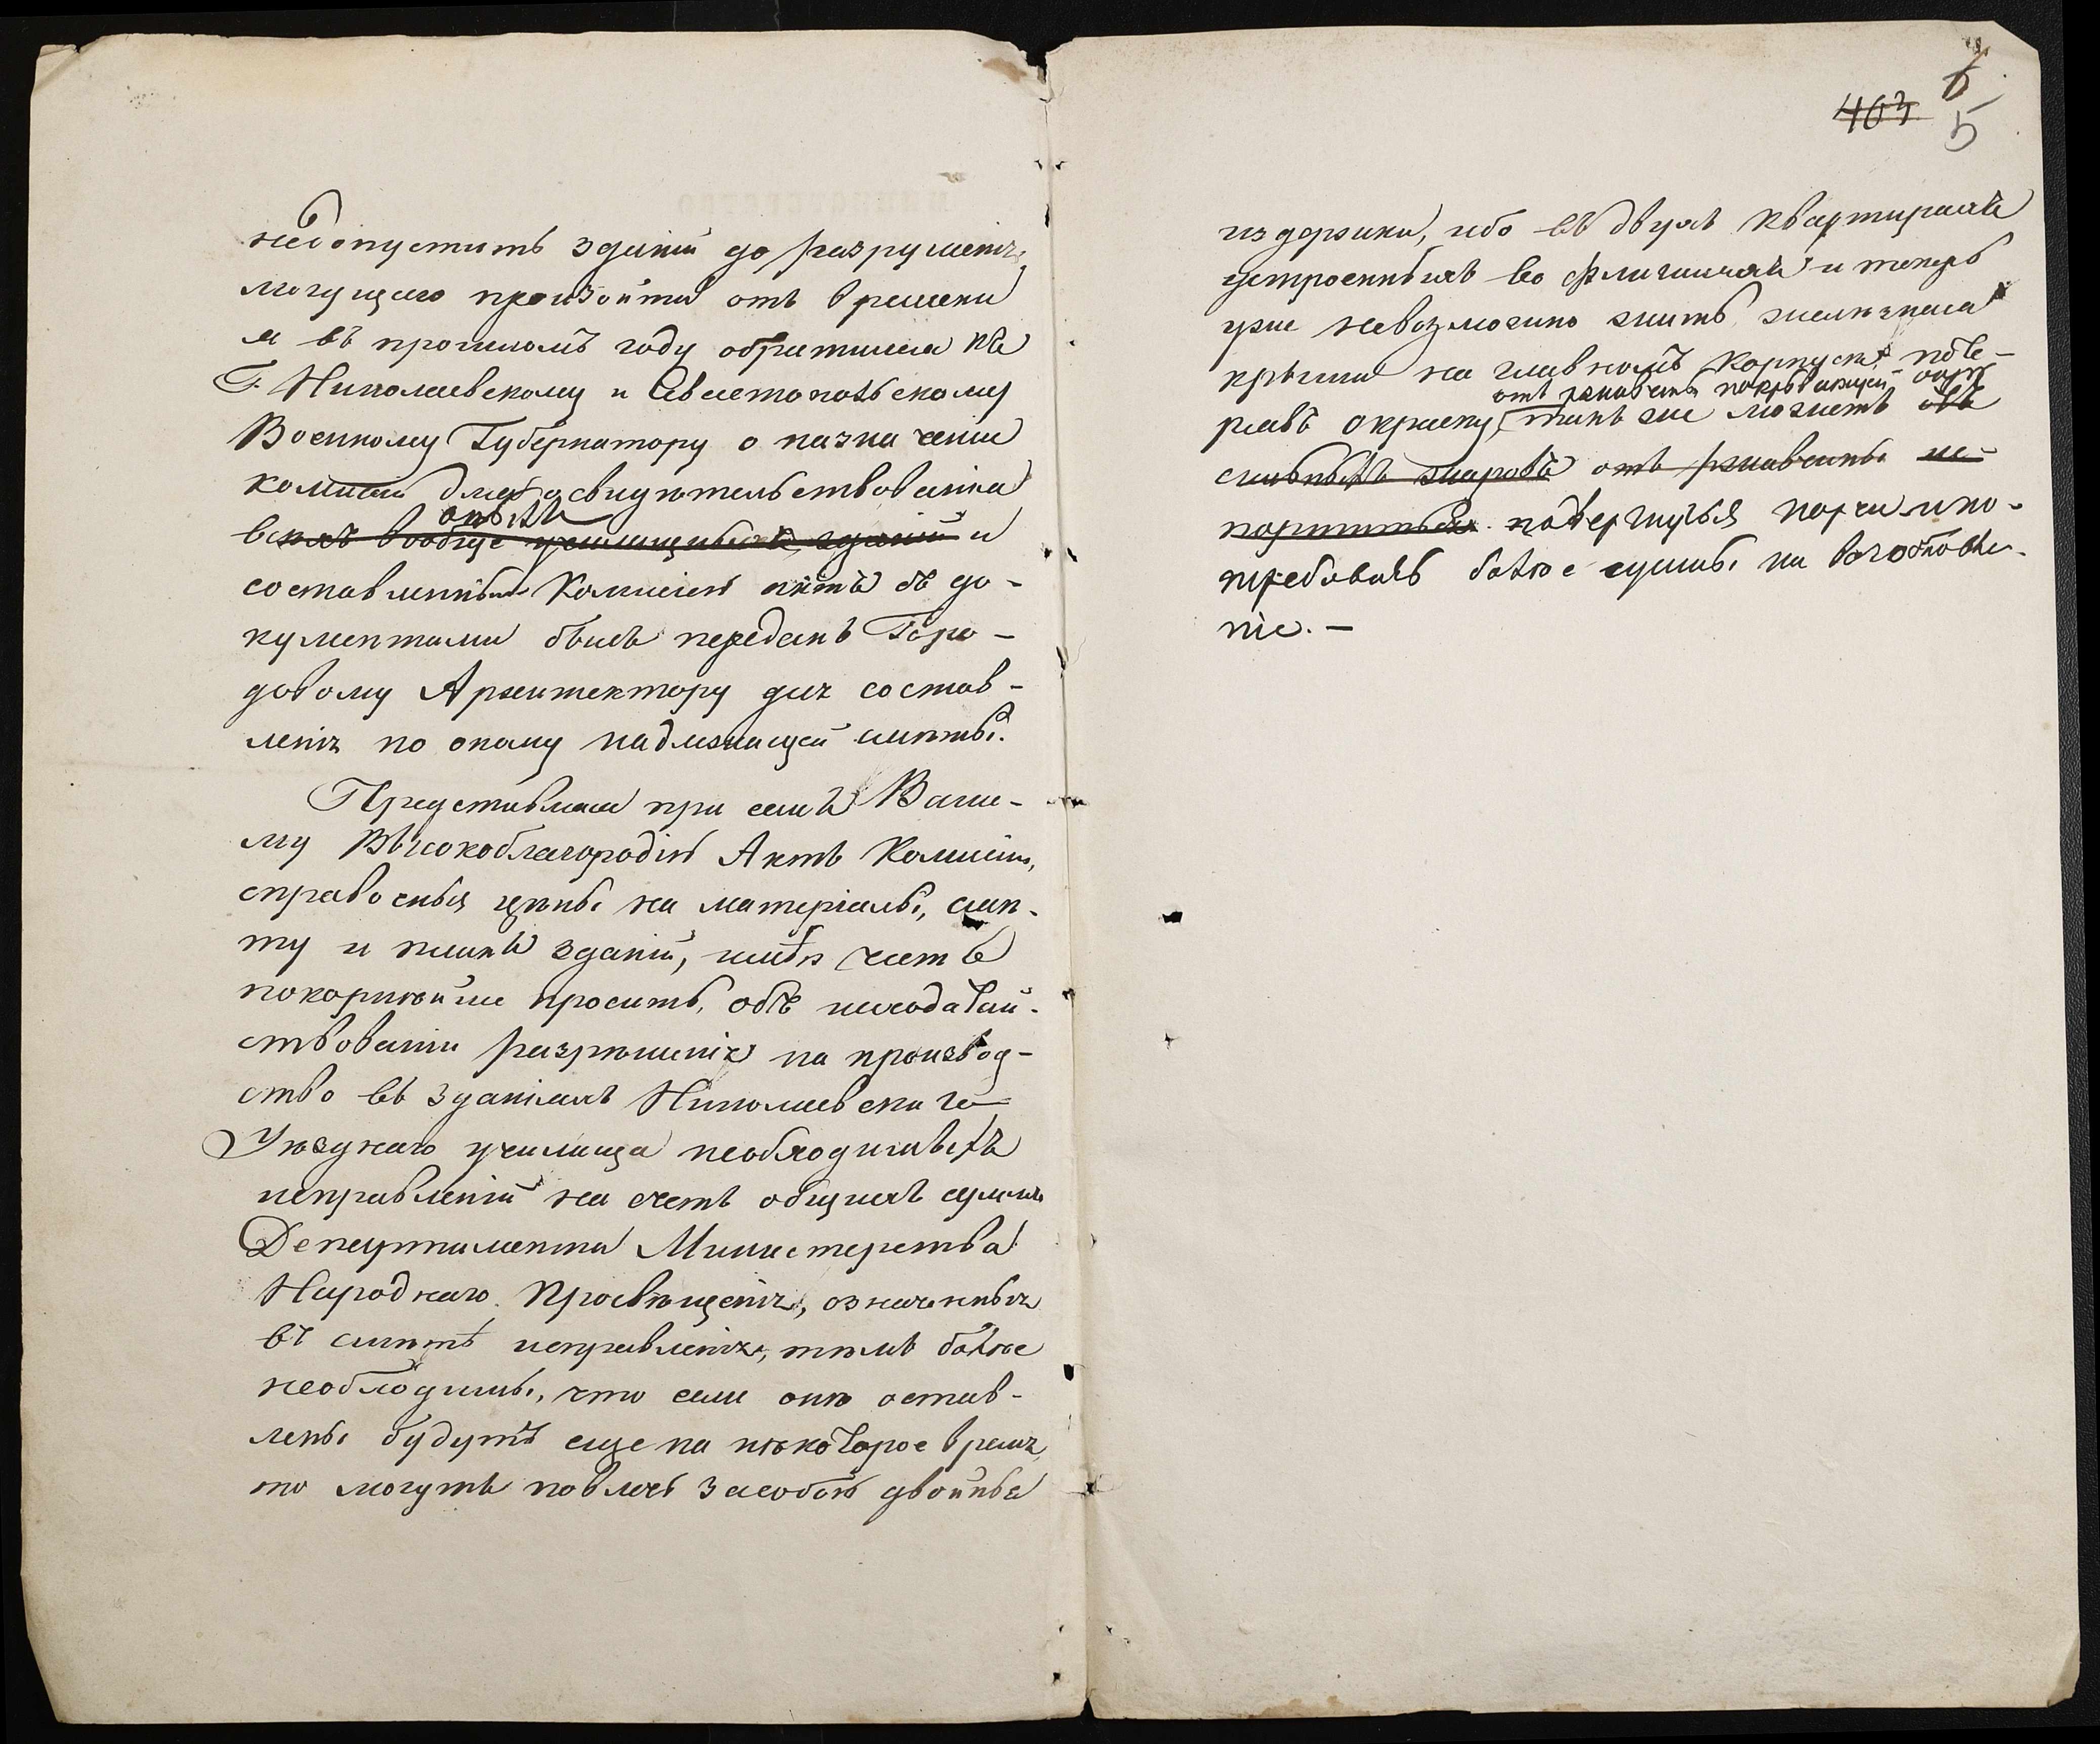 недопустить зданій до разрушенія,
могущаго произойти отъ времени
я въ прошломъ году обратился къ
Г. Николаевскому и Севастопольскому
Военному Губернатору о назначеніи
комисіи для освидѣтельствованія
оныхъ
всѣхъ вообще училищныхъ зданій и
составленный Комисіею актъ съ до-
кументами былъ переданъ Горо-
довому Архитектору для состав-
ленія по оному надлежащей смѣты.
Представляя при семъ Ваше-
му Высокоблагородію Актъ Комисіи,
справочныя цѣны на матеріалы, смѣ-
ту и планъ зданій, имѣю честь
покорнѣйше просить, объ исходатай-
ствованіи разрѣшенія на производ-
ство въ зданіяхъ Николаевскаго
Уѣзднаго училища необходимыхъ
исправленій на счетъ общихъ суммъ
Департамента Министерства
Народнаго Просвѣщенія, означенныя
въ смѣтѣ исправленія, тѣмъ болѣе
необходимы, что если онѣ остав-
лены будутъ еще на нѣкоторое время,
то могутъ повлечь за собою двойныя
403 6
5
издержки, ибо въ двухъ квартирахъ
устроенныхъ во флигиляхъ и теперь
уже невозможно жить, желѣзная
крыша на главномъ корпусѣ поте-
отъ ржавчины покрывающей
рявъ окраску, также можетъ
сильныхъ жаровъ отъ ржавчины ис-
портиться. подвергнуться порчи и по-
требовать болѣе суммы на возобновле-
ніе.—